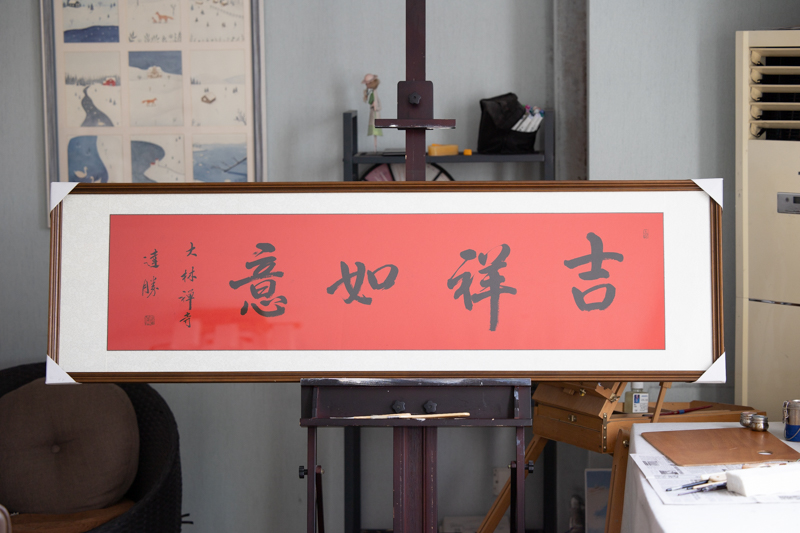 吉祥如意
大林禅寺
達勝